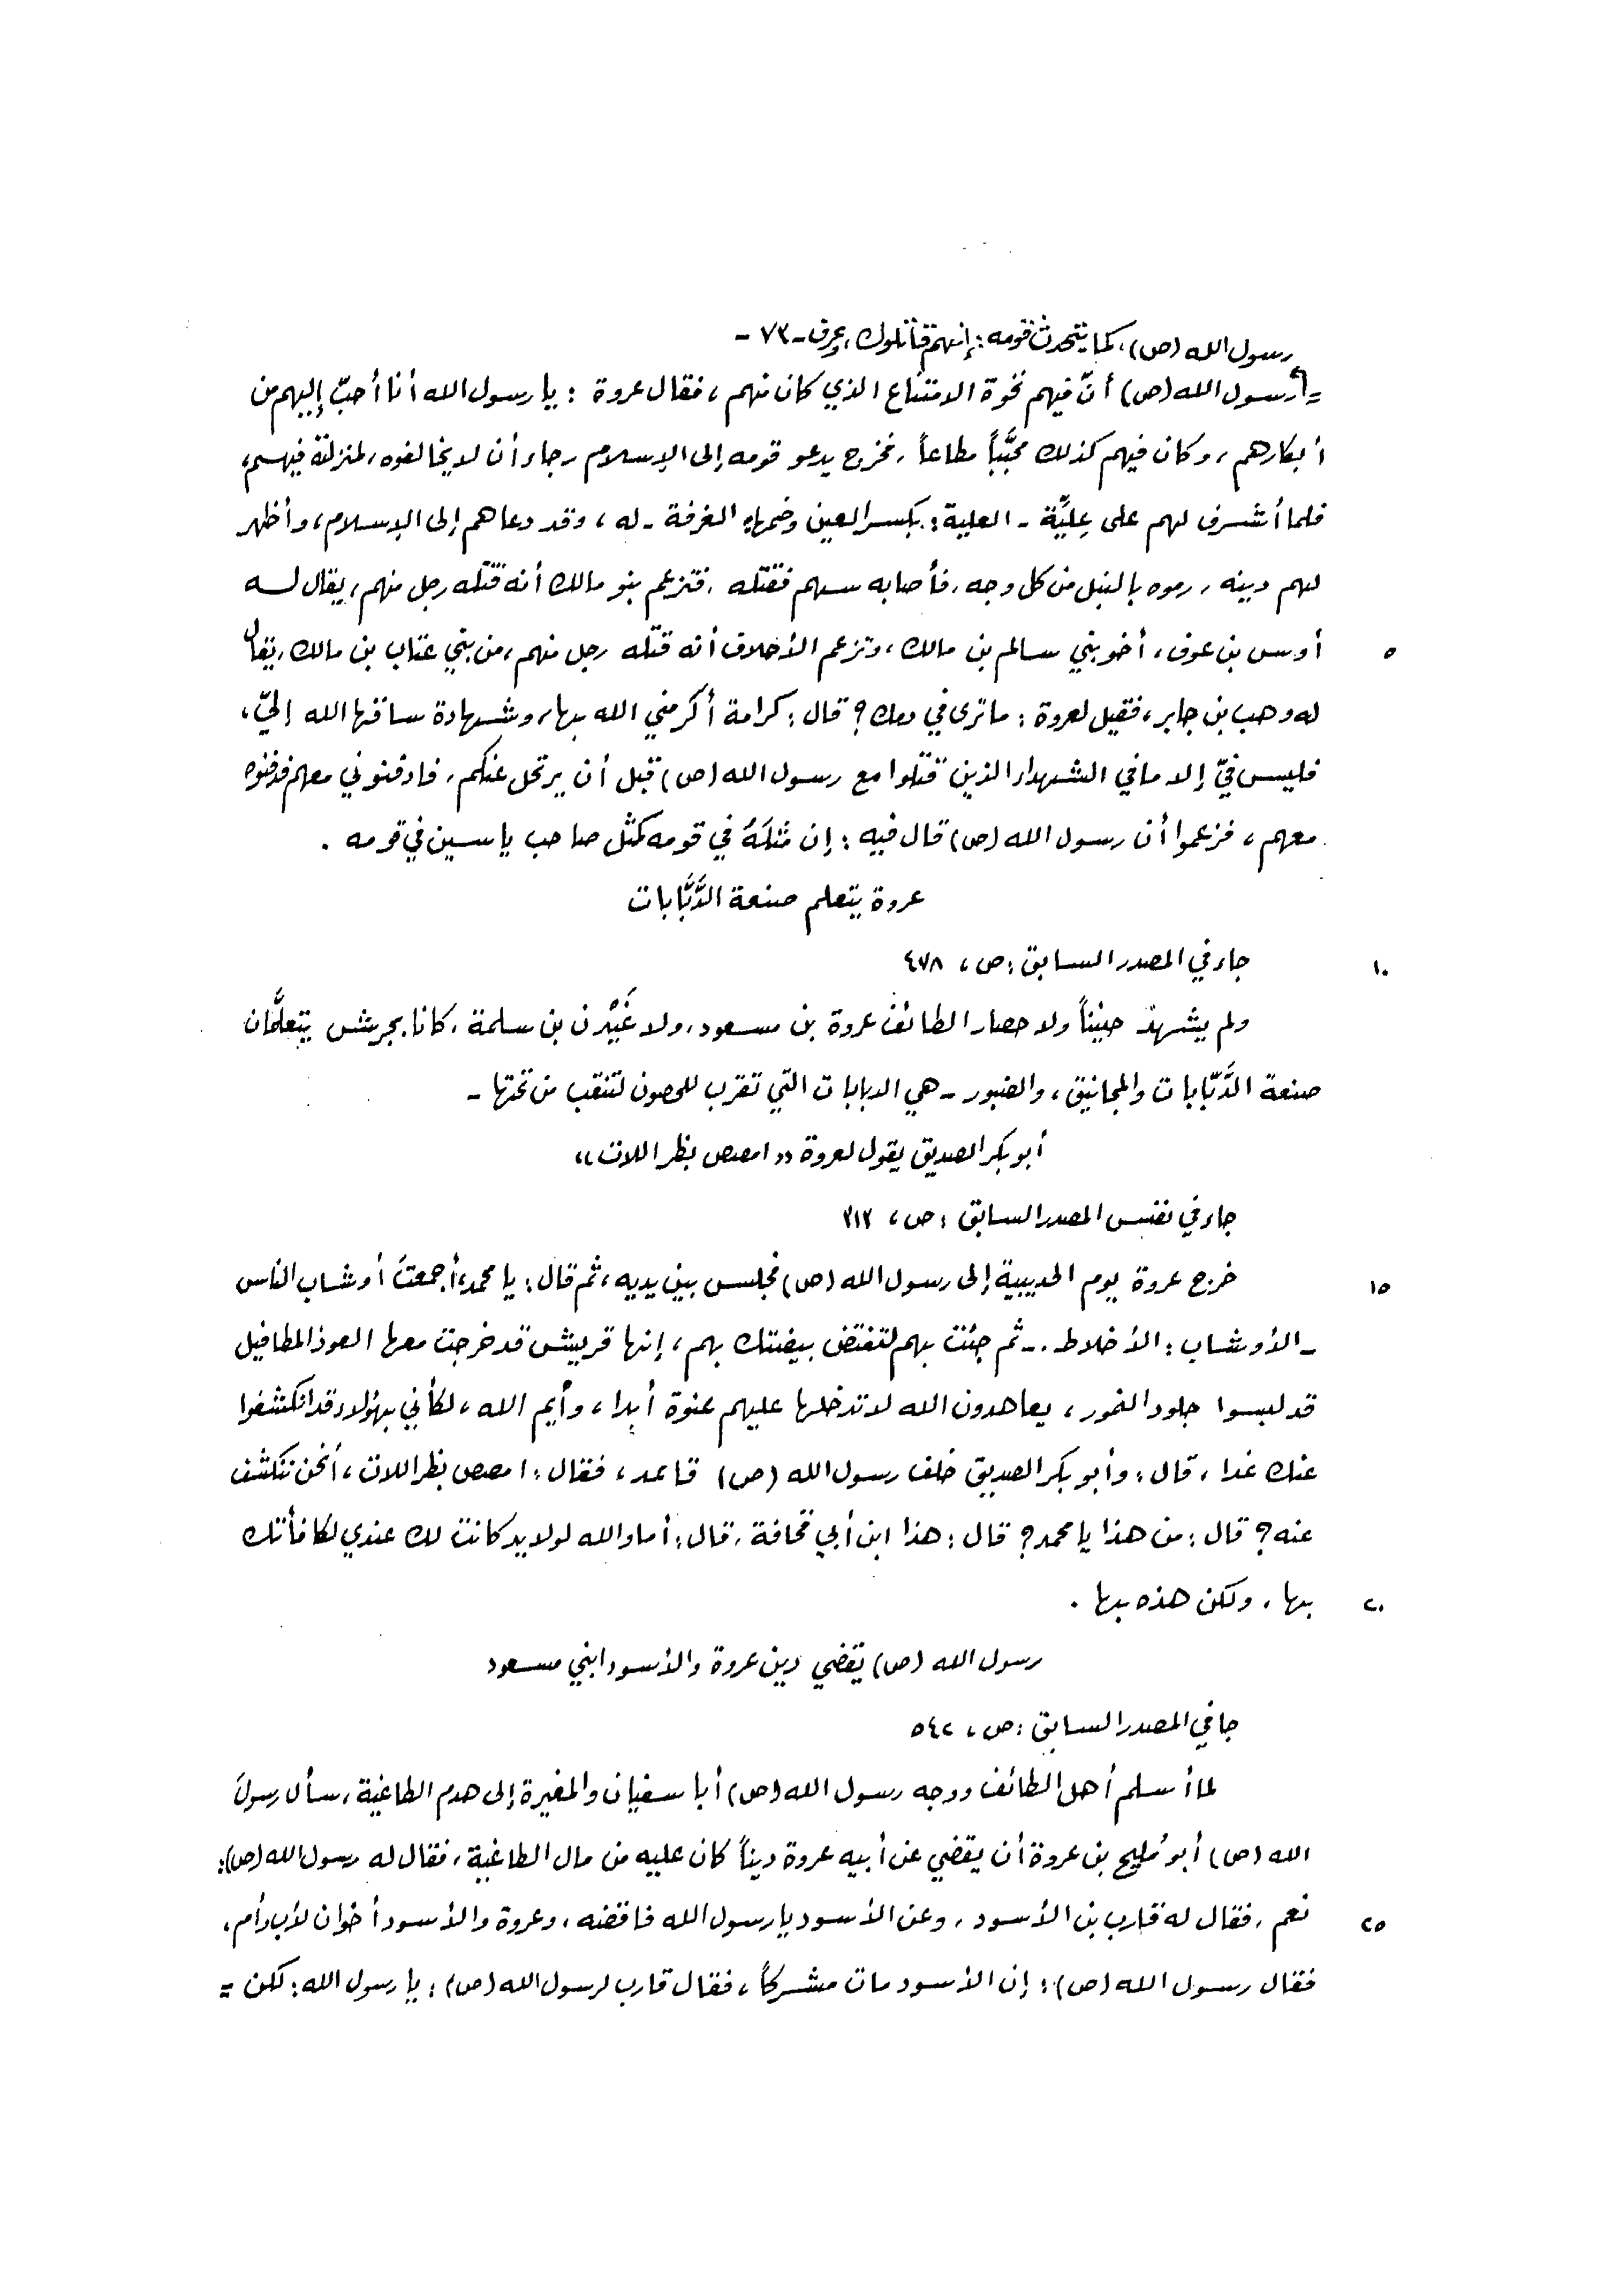 رسول الله (ص)، كما يتحدث قومه: إنهم قاتلوك، وعرف -٧٣-
= رسول الله (ص) أنّ فيهم نخوة الامتناع الذي كان منهم، فقال عروة: يا رسول الله أنا أحبّ إليهم من
أبكارهم، وكان فيهم كذلك محبَّباً مطاعاً، فخرج يدعو قومه إلى الإسلام رجاء أن لا يخالفوه، لمنزلته فيهم،
فلما أشرف لهم على عِليَّة - العلية: بكسر العين وضمها، الغرفة - له، وقد دعاهم إلى الإسلام، وأظهر
لهم دينه، رموه بالنبل من كل وجه، فأصابه سهم فقتله، فتزعم بنو مالك أنه قتله رجل منهم، يقال له
٥ أوس بن عوف، أخو بني سالم بن مالك، وتزعم الأحلاف أنه قتله رجل منهم، من بني عتاب بن مالك، يقال
له وهب بن جابر، فقيل لعروة: ما ترى في دمك؟ قال: كرامة أكرمني الله بها، وشهادة ساقها الله إليّ،
فليس فيّ إلا ما في الشهداء الذين قتلوا مع رسول الله (ص) قبل أن يرتحل عنكم، فادفنوني معهم فدفنوه
معهم، فزعموا أن رسول الله (ص) قال فيه: إن مَثَلَهُ في قومه كمثل صاحب ياسين في قومه.
عروة يتعلم صنعة الدَّبَّابات
١٠ جاء في المصدر السابق: ص، ٤٧٨
ولم يشهدْ حنيناً ولا حصار الطائف عروة بن مسعود، ولا غَيْلان بن سلمة، كانا بجرش يتعلَّمان
صنعة الدَّبّابات والمجانيق، والضبور - هي الدبابات التي تقرب للحصون لتنقب من تحتها -
أبو بكر الصديق يقول لعروة «امصص بظر اللات»
جاء في نفس المصدر السابق: ص، ٣١٣
١٥ خرج عروة يوم الحديبية إلى رسول الله (ص) فجلس بين يديه، ثم قال: يا محمد، أجمعتَ أوشاب الناس
- الأوشاب: الأخلاط. - ثم جئت بهم لتفتض بيضتك بهم، إنها قريش قد خرجت معها العوذ المطافيل
قد لبسوا جلود النمور، يعاهدون الله لا تدخلها عليهم عنوة أبدا، وأيم الله، لكأني بهؤلاء قد انكشفوا
عنك غدا، قال: وأبو بكر الصديق خلف رسول الله (ص) قاعد، فقال: امصص بظر اللات، أنحن ننكشف
عنه؟ قال: من هذا يا محمد؟ قال: هذا ابن أبي قحافة، قال: أما والله لولا يد كانت لك عندي لكافأتك
٢٠ بها، ولكن هذه بها.
رسول الله (ص) يقضي دين عروة والأسود ابني مسعود
جا في المصدر السابق: ص، ٥٤٢
لما أسلم أهل الطائف ووجه رسول الله (ص) أبا سفيان والمغيرة إلى هدم الطاغية، سأل رسولَ
الله (ص) أبو مُليح بن عروة أن يقضي عن أبيه عروة ديناً كان عليه من مال الطاغية، فقال له رسول الله (ص):
٢٥ نعم، فقال له قارب بن الأسود، وعن الأسود يا رسول الله فاقضه، وعروة والأسود أخوان لأب وأم،
فقال رسول الله (ص): إن الأسود مات مشركاً، فقال قارب لرسول الله (ص): يا رسول الله: لكن =